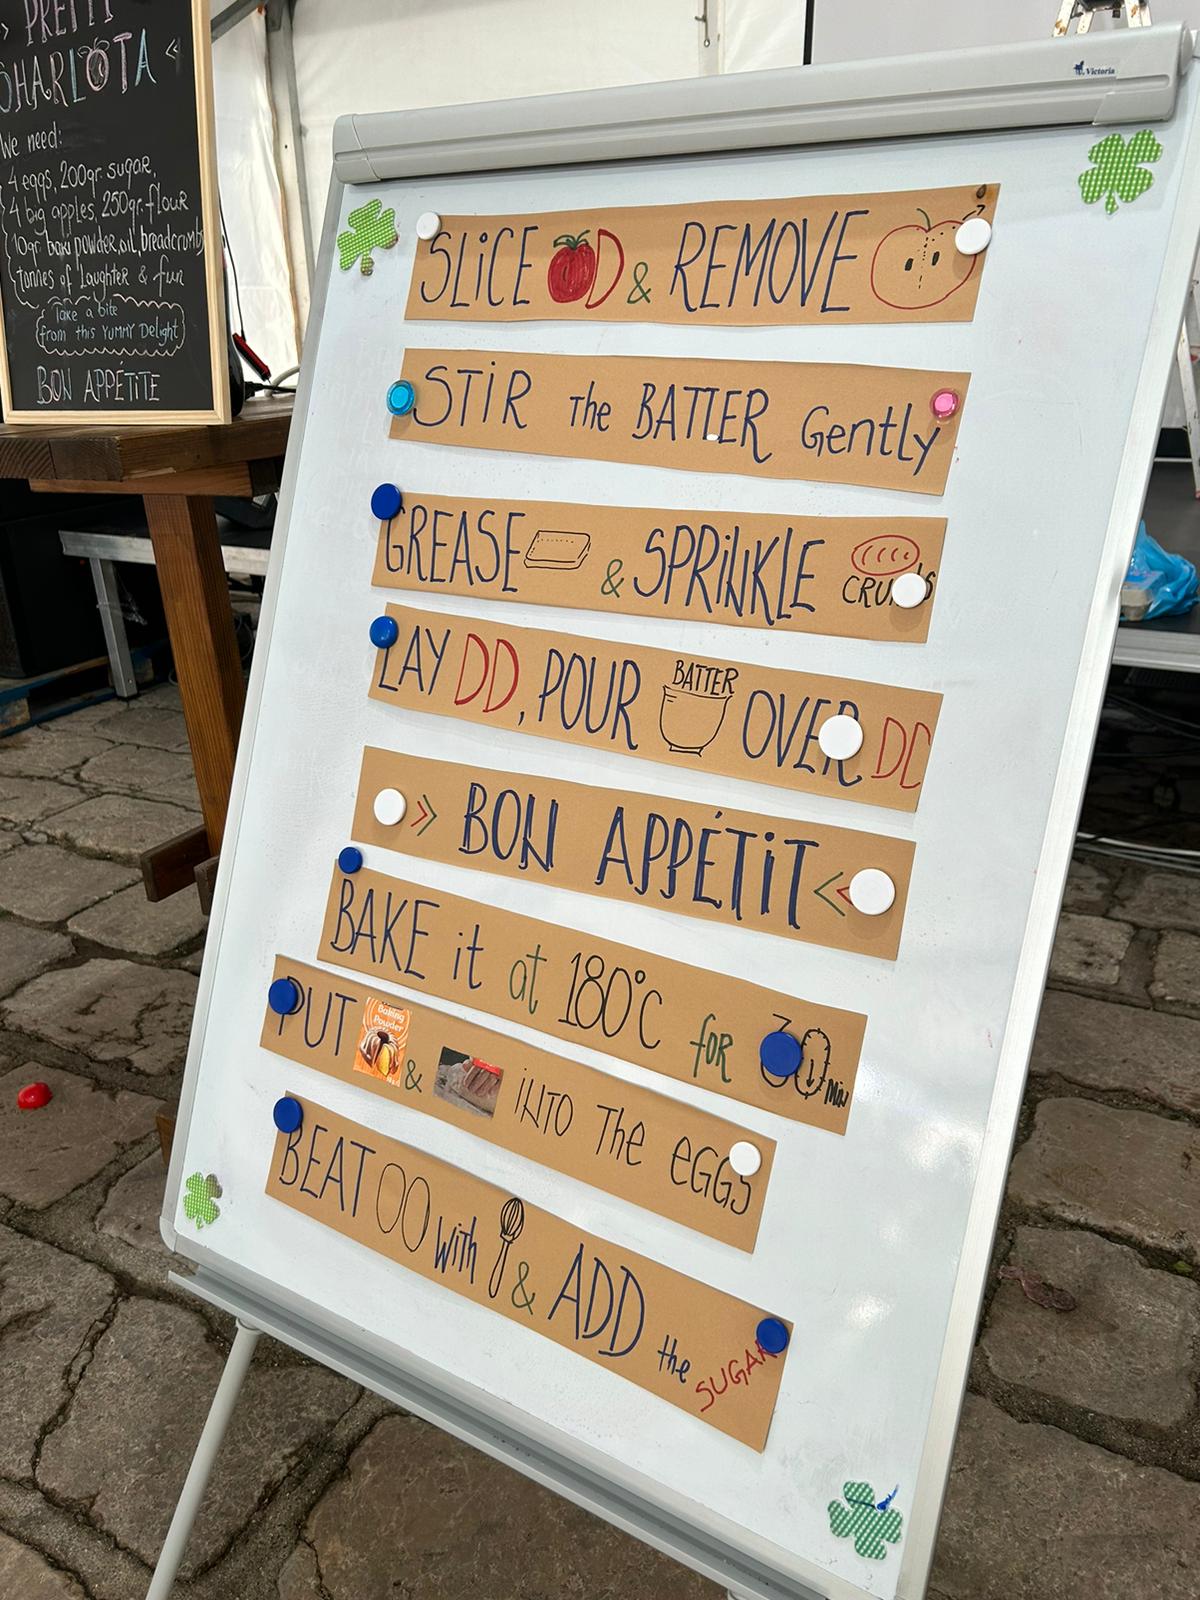 PRETTY
SHARLOTA
We need:
4 eggs, 200gr. sugar,
4 big apples, 250gr. flour
10gr. baki powder, oil, breadcrumbs
tonnes of Laughter & fun
Take a bite
from this YUMMY Delight
BON APPÉTITE
Victoria
SLICE & REMOVE
STIR the BATTER Gently
GREASE & SPRINKLE
LAY , POUR BATTER OVER
BON APPÉTIT
BAKE it at 180°C for 30 MIN
Baking
Powder
PUT & INTO The EGGS
BEAT with & ADD the SUGAR